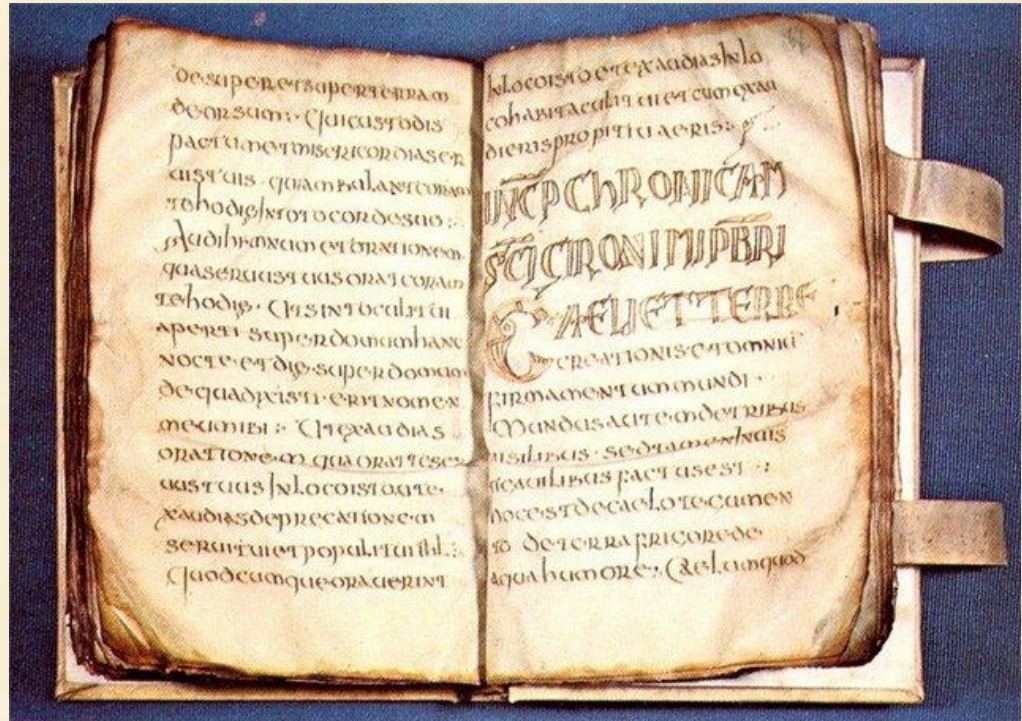 desuper et super terram
deorsum : Qui custodis
pactum et misericordias er
uis tuis · quambulant coram
te hodie In toto corde suo :
Audi hemnum et orationem
qua seruus tuus orat coram
te hodie · Ut sint oculi tui
aperti super domum hanc
nocte et die · super domum
de qua dixisti · erit nomen
meum ibi : Ut exaudias
orationem qua orat te ser
uus tuus In loco isto ut e
xaudias deprecationem
serui tui et populi tui ihl :
Quodcumque orauerint
In loco isto et exaudias In lo
co habitaculi tui et cum exau
dieris propitiu aeris :
INCP CHRONICAM
SCI GIRONIMI PBRI
CAELI ET TERRE
creationis et omniū
firmamentum mundi ·
Mundus autem de tribus
uisilibus · sed tamen Inuis
ticauilibus factus est :
hoc est de caelo tegumen
to de terra frigore de
aqua humore : Caelum quod